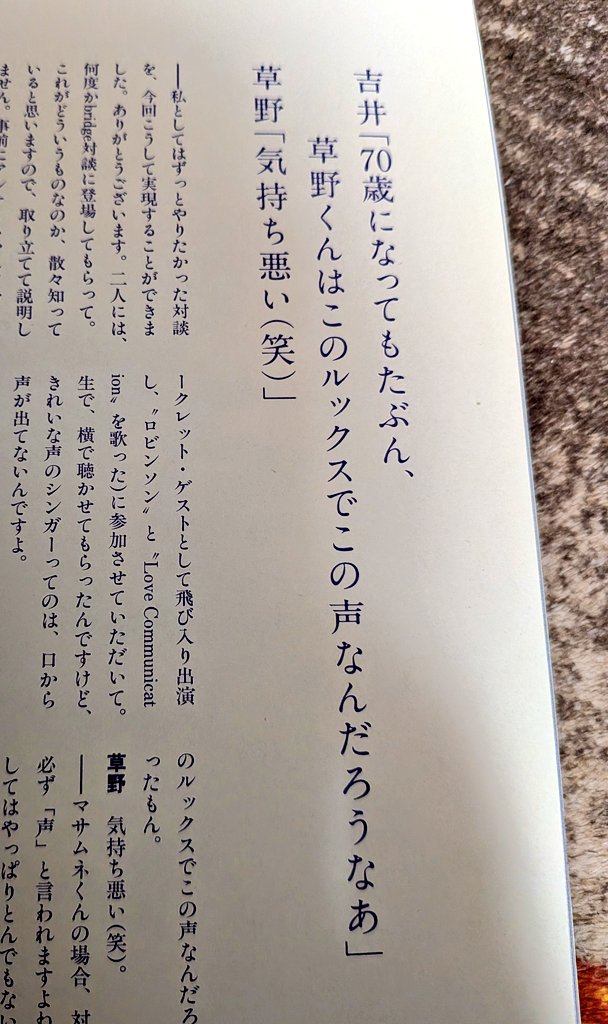 吉井「70歳になってもたぶん、
草野くんはこのルックスでこの声なんだろうなあ」
草野「気持ち悪い(笑)」
──私としてはずっとやりたかった対談
を、今回こうして実現することができま
した。ありがとうございます。二人には、
何度かbridge対談に登場してもらって。
これがどういうものなのか、散々知って
いると思いますので、取り立てて説明し
ません。事前に
ークレット・ゲストとして飛び入り出演
し、〝ロビンソン〟と〝Love Communicat
ion〟を歌った)に参加させていただいて。
生で、横で聴かせてもらったんですけど、
きれいな声のシンガーってのは、口から
声が出てないんですよ。
のルックスでこの声なんだろ
ったもん。
草野 気持ち悪い(笑)。
──マサムネくんの場合、対
必ず「声」と言われますよね
してはやっぱりとんでもない